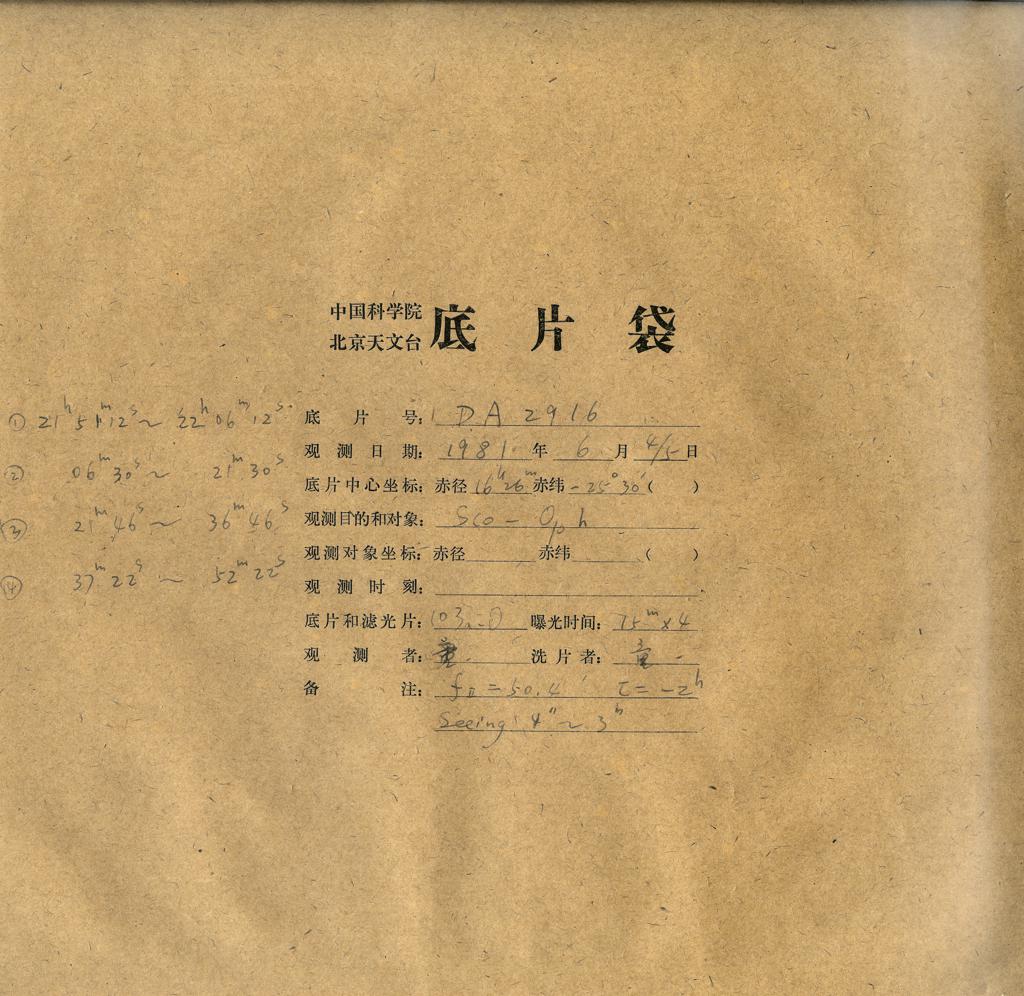 中国科学院
北京天文台 底片袋
① 21ʰ 51ᵐ 12ˢ ~ 22ʰ 06ᵐ 12ˢ
② 06ᵐ 30ˢ ~ 21ᵐ 30ˢ
③ 21ᵐ 46ˢ ~ 36ᵐ 46ˢ
④ 37ᵐ 22ˢ ~ 52ᵐ 22ˢ
底片号: DA 2916
观测日期: 1981 年 6 月 4/5 日
底片中心坐标: 赤径 16ʰ26ᵐ 赤纬 -25°30′ ( )
观测目的和对象: Sco - Oph
观测对象坐标: 赤径 赤纬 ( )
观测时刻:
底片和滤光片: 103a-O 曝光时间: 15ᵐ x4
观测者: 童 洗片者: 童
备注: = 50.4 t = -2ʰ
Seeing: 4" ~ 3"